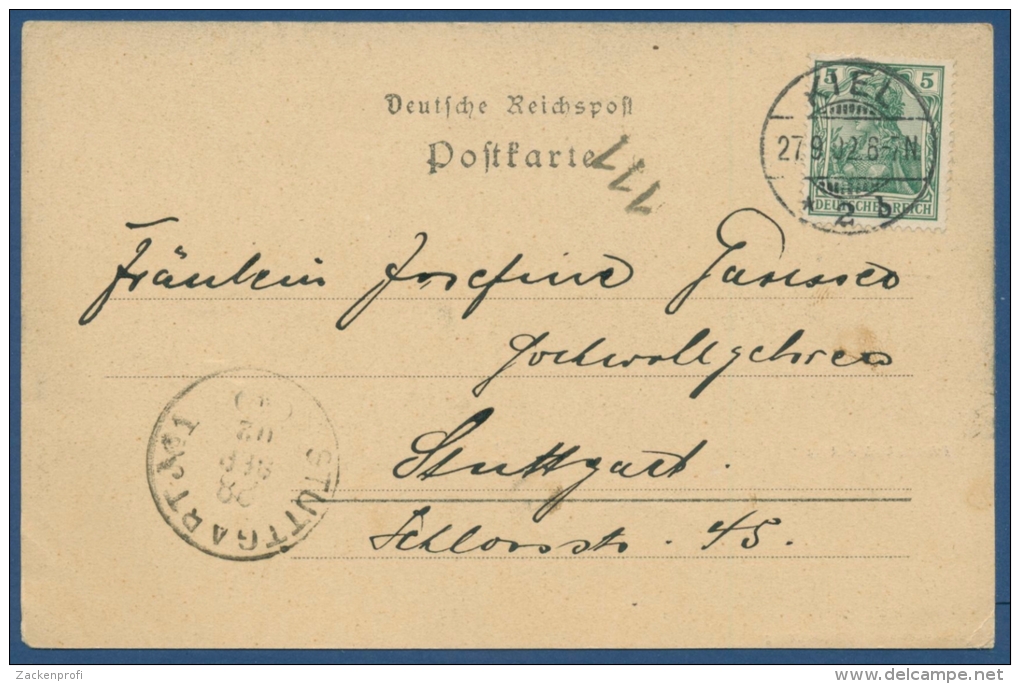 Deutsche Reichspost
Postkarte
117
5 5
DEUTSCHES REICH
KIEL
27.9.02.6-7N.
* 2 b
Fräulein Josefine
Hochwollgeboren
Stuttgart.
Schlossstr. 45.
STUTTGART. No 1
28
SEP
02
Zackenprofi
www.delcampe.net